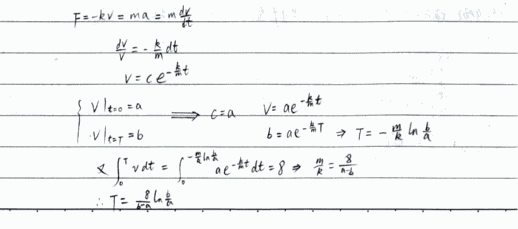 F=-kv=ma=m dv/dt
dv/v = -k/m dt
v=ce^{-k/m t}
{ v|t=0 = a ⟹ c=a v=ae^{-k/m t}
v|t=T = b b=ae^{-k/m T} ⇒ T= -m/k ln b/a
又 ∫_0^T vdt = ∫_0^{-m/k ln b/a} ae^{-k/m t} dt = 8 ⇒ m/k = 8/(a-b)
∴ T= 8/(b-a) ln b/a